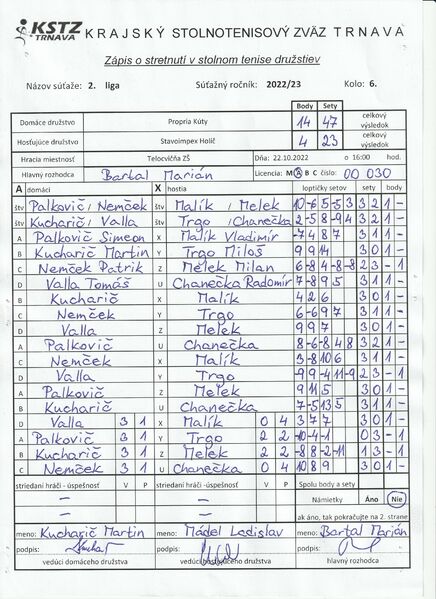 KSTZ TRNAVA KRAJSKÝ STOLNOTENISOVÝ ZVÄZ TRNAVA
Zápis o stretnutí v stolnom tenise družstiev
Názov súťaže: 2. liga Súťažný ročník: 2022/23 Kolo: 6.
Body Sety
Domáce družstvo Propria Kúty 14 47 celkový výsledok
Hosťujúce družstvo Stavoimpex Holíč 4 23 celkový výsledok
Hracia miestnosť Telocvičňa ZŠ Dňa: 22.10.2022 o 16:00 hod.
Hlavný rozhodca Bartal Marián Licencia: M A B C číslo: 00 030
A domáci X hostia loptičky setov sety body
štv Palkovič / Nemček štv Malík / Melek 10 -6 5 -5 3 3 2 1 -
štv Kucharič / Valla štv Trgo / Chanečka 2 -5 8 -9 4 3 2 1 -
A Palkovič Simeon X Malík Vladimír -7 4 8 7 3 1 1 -
B Kucharič Martin Y Trgo Miloš 9 9 14 3 0 1 -
C Nemček Patrik Z Melek Milan 6 -8 4 -8 -8 2 3 - 1
D Valla Tomáš U Chanečka Radomír 7 -8 9 5 3 1 1 -
B Kucharič X Malík 4 2 6 3 0 1 -
C Nemček Y Trgo 6 -6 9 7 3 1 1 -
D Valla Z Melek 9 9 7 3 0 1 -
A Palkovič U Chanečka 8 -6 -8 4 8 3 2 1 -
C Nemček X Malík 3 -8 10 6 3 1 1 -
D Valla Y Trgo -9 9 -4 11 -9 2 3 - 1
A Palkovič Z Melek 9 11 5 3 0 1 -
B Kucharič U Chanečka 7 -5 13 5 3 1 1 -
D Valla 3 1 X Malík 0 4 3 7 7 3 0 1 -
A Palkovič 3 1 Y Trgo 2 2 -10 -4 -1 0 3 - 1
B Kucharič 3 1 Z Melek 2 2 -8 8 -2 -11 1 3 - 1
C Nemček 3 1 U Chanečka 0 4 10 8 9 3 0 1 -
striedaní hráči - úspešnosť V P striedaní hráči - úspešnosť V P Spolu body a sety
— — Námietky Áno Nie
— — ak áno, tak pokračujte na 2. strane
meno: Kucharič Martin meno: Mádel Ladislav meno: Bartal Marián
podpis: podpis: podpis:
vedúci domáceho družstva vedúci hosťujúceho družstva hlavný rozhodca